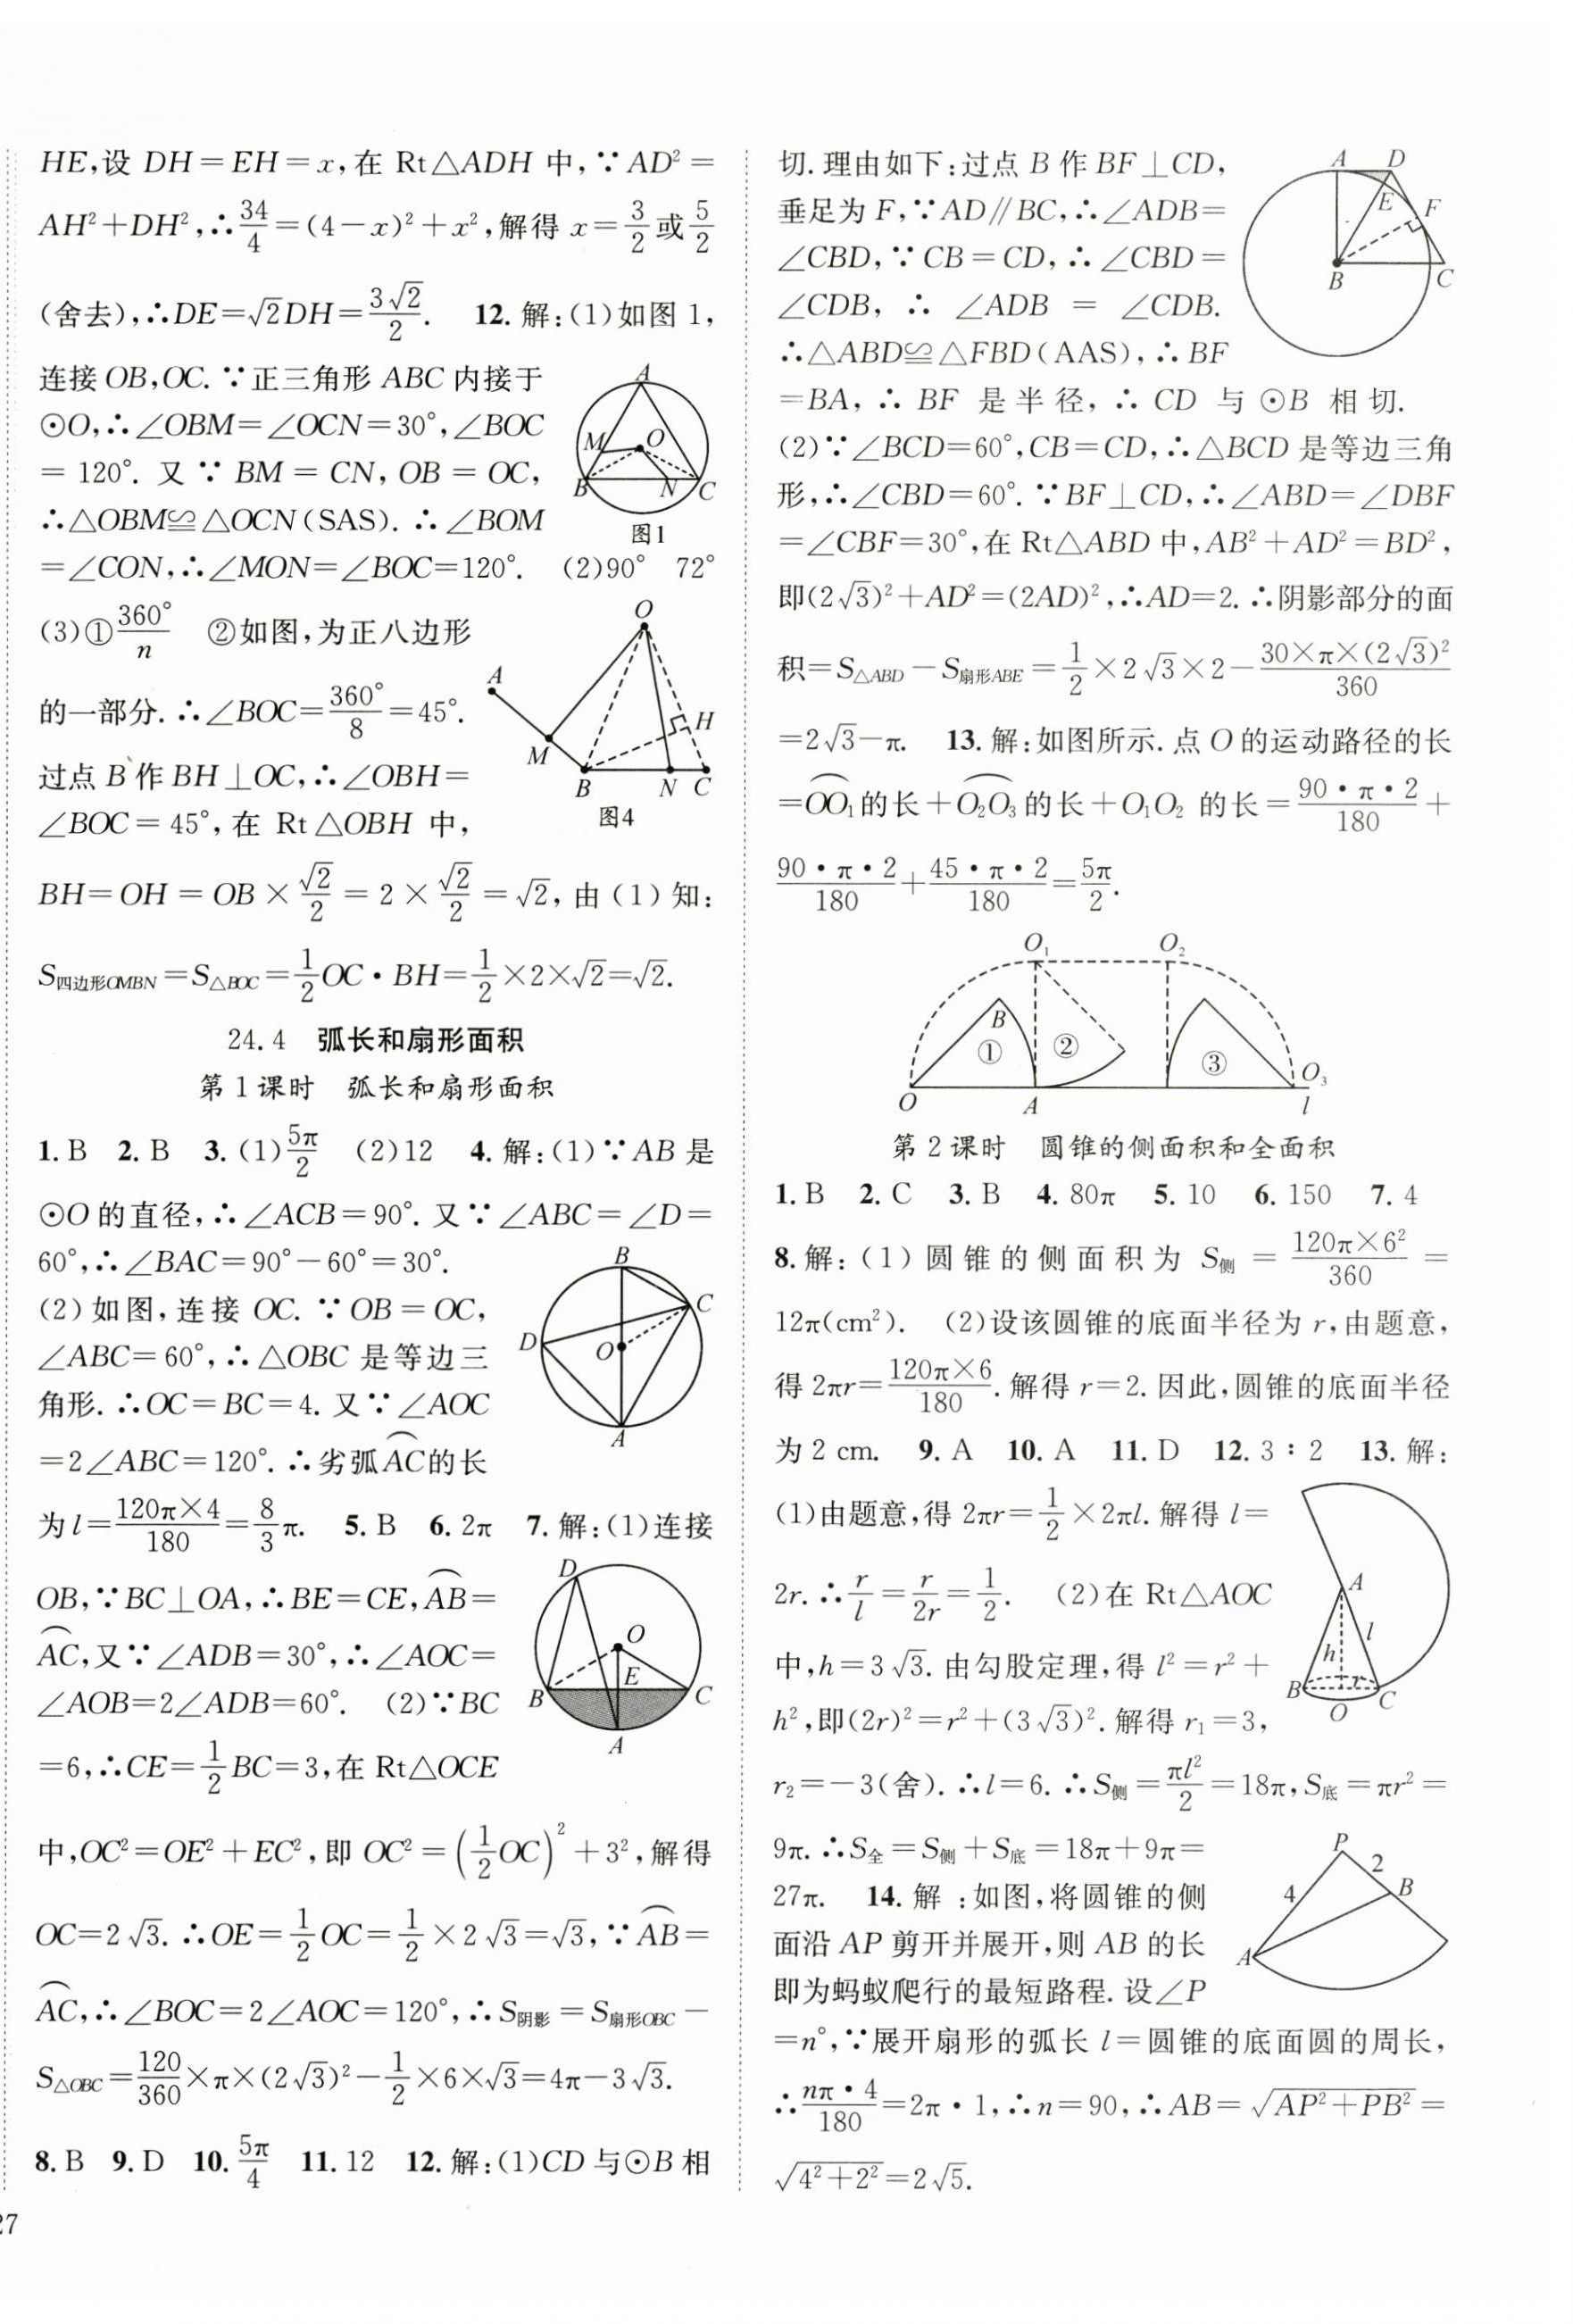 HE,设 DH=EH=x,在 Rt△ADH 中,∵AD²=
AH²+DH²,∴34/4=(4-x)²+x²,解得 x=3/2或5/2
(舍去),∴DE=√2DH=3√2/2. 12.解:(1)如图 1,
连接OB,OC.∵正三角形 ABC 内接于
⊙O,∴∠OBM=∠OCN=30°,∠BOC
=120°.又∵BM=CN,OB=OC,
∴△OBM≌△OCN(SAS).∴∠BOM
=∠CON,∴∠MON=∠BOC=120°. (2)90° 72°
A
M
O
B
N
C
图1
(3)①360°/n ②如图,为正八边形
的一部分.∴∠BOC=360°/8=45°.
过点 B 作 BH⊥OC,∴∠OBH=
∠BOC=45°,在 Rt△OBH 中,
O
A
M
H
B
N
C
图4
BH=OH=OB×√2/2=2×√2/2=√2,由(1)知:
S四边形OMBN=S△BOC=1/2OC·BH=1/2×2×√2=√2.
24.4 弧长和扇形面积
第 1 课时 弧长和扇形面积
1.B 2.B 3.(1)5π/2 (2)12 4.解:(1)∵AB 是
⊙O 的直径,∴∠ACB=90°.又∵∠ABC=∠D=
60°,∴∠BAC=90°-60°=30°.
(2)如图,连接 OC.∵OB=OC,
∠ABC=60°,∴△OBC 是等边三
角形.∴OC=BC=4.又∵∠AOC
=2∠ABC=120°.∴劣弧A͡C的长
B
C
D
O
A
为l=120π×4/180=8/3π. 5.B 6.2π 7.解:(1)连接
OB,∵BC⊥OA,∴BE=CE,A͡B=
A͡C,又∵∠ADB=30°,∴∠AOC=
∠AOB=2∠ADB=60°. (2)∵BC
=6,∴CE=1/2BC=3,在 Rt△OCE
D
O
E
B
C
A
中,OC²=OE²+EC²,即 OC²=(1/2OC)²+3²,解得
OC=2√3.∴OE=1/2OC=1/2×2√3=√3,∵A͡B=
A͡C,∴∠BOC=2∠AOC=120°,∴S阴影=S扇形OBC-
S△OBC=120/360×π×(2√3)²-1/2×6×√3=4π-3√3.
8.B 9.D 10.5π/4 11.12 12.解:(1)CD 与⊙B 相
27
切.理由如下:过点 B 作 BF⊥CD,
垂足为 F,∵AD∥BC,∴∠ADB=
∠CBD,∵CB=CD,∴∠CBD=
∠CDB,∴∠ADB=∠CDB.
∴△ABD≌△FBD(AAS),∴BF
=BA,∴BF 是半径,∴CD 与⊙B 相切.
A
D
E
F
B
C
(2)∵∠BCD=60°,CB=CD,∴△BCD 是等边三角
形,∴∠CBD=60°.∵BF⊥CD,∴∠ABD=∠DBF
=∠CBF=30°,在 Rt△ABD 中,AB²+AD²=BD²,
即(2√3)²+AD²=(2AD)²,∴AD=2.∴阴影部分的面
积=S△ABD-S扇形ABE=1/2×2√3×2-30×π×(2√3)²/360
=2√3-π. 13.解:如图所示.点 O 的运动路径的长
=O͡O₁的长+O₂͡O₃的长+O₁O₂ 的长=90·π·2/180+
90·π·2/180+45·π·2/180=5π/2.
O₁
O₂
B
①
②
③
O
A
O₃
l
第 2 课时 圆锥的侧面积和全面积
1.B 2.C 3.B 4.80π 5.10 6.150 7.4
8.解:(1)圆锥的侧面积为 S侧=120π×6²/360=
12π(cm²). (2)设该圆锥的底面半径为 r,由题意,
得 2πr=120π×6/180.解得 r=2.因此,圆锥的底面半径
为 2 cm. 9.A 10.A 11.D 12.3∶2 13.解:
(1)由题意,得 2πr=1/2×2πl.解得 l=
2r.∴r/l=r/2r=1/2. (2)在 Rt△AOC
中,h=3√3.由勾股定理,得 l²=r²+
h²,即(2r)²=r²+(3√3)².解得 r₁=3,
A
l
h
r
B
O
C
r₂=-3(舍).∴l=6.∴S侧=πl²/2=18π,S底=πr²=
9π.∴S全=S侧+S底=18π+9π=
27π. 14.解:如图,将圆锥的侧
面沿 AP 剪开并展开,则 AB 的长
即为蚂蚁爬行的最短路程.设∠P
P
2
4
B
A
=n°,∵展开扇形的弧长 l=圆锥的底面圆的周长,
∴nπ·4/180=2π·1,∴n=90,∴AB=√(AP²+PB²)=
√(4²+2²)=2√5.